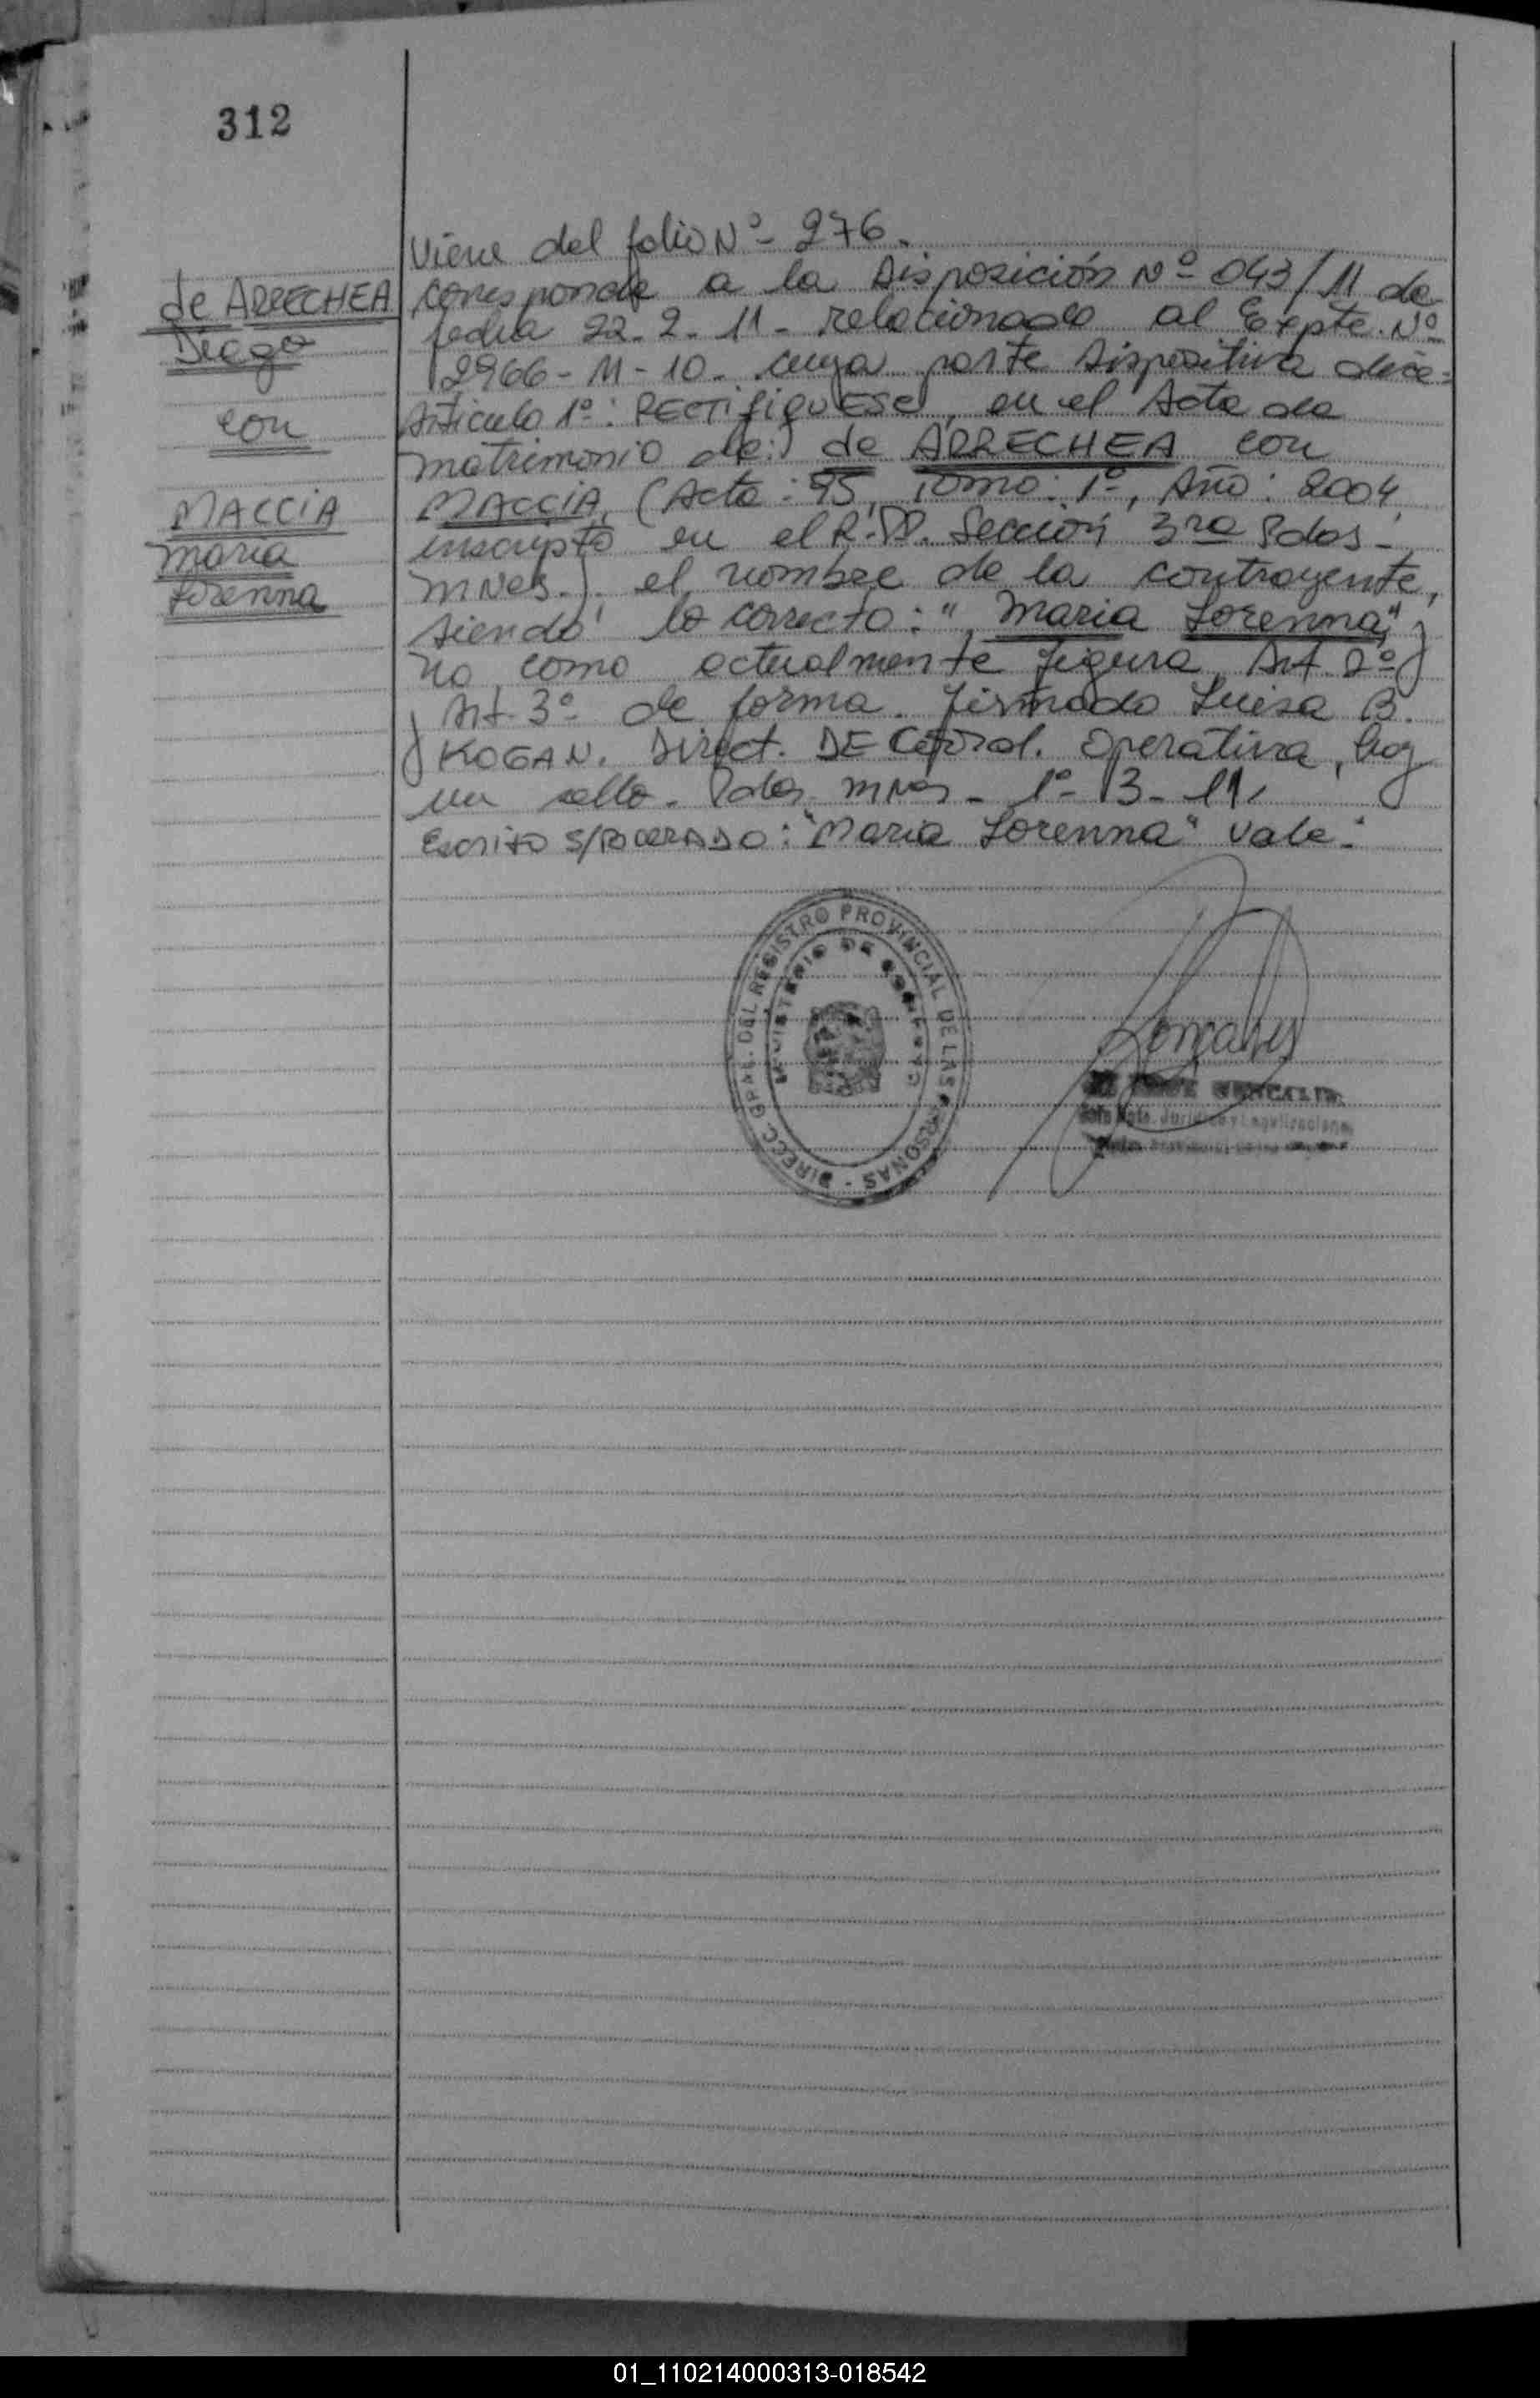 312
de ARRECHEA
Diego
con
MACCIA
Maria
Lorenna
Viene del folio Nº- 276.
Corresponde a la Disposición Nº 043/11 de
fecha 22-2-11- relacionado al Expte. Nº
2966-M-10- cuya parte dispositiva dice:
Articulo 1º: RECTIFIQUESE, en el Acta de
matrimonio de: de ARRECHEA con
MACCIA, (Acta: 95, Tomo: 1º, Año: 2004,
inscripto en el R.PP. Sección 3ra Pdas-
MNES.) el nombre de la contrayente,
siendo lo correcto: " Maria Lorenna", y
no como actualmente figura, Art. 2º
y Art. 3º de forma. Firmado Luisa B.
KOGAN. Direct. DE Operativa, hay
un sello. Pdas. MNes - 1º-3-11.
Escrito S/BORRADO: "Maria Lorenna" Vale.-
DIRECC. GRAL. DEL REGISTRO PROVINCIAL DE LAS PERSONAS -
MINISTERIO DE GOBIERNO
01_110214000313-018542